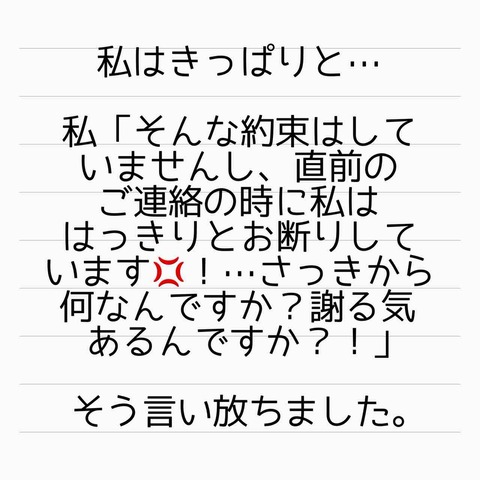 私はきっぱりと…
私「そんな約束はして
いませんし、直前の
ご連絡の時に私は
はっきりとお断りして
います💢！…さっきから
何なんですか？謝る気
あるんですか？！」
そう言い放ちました。